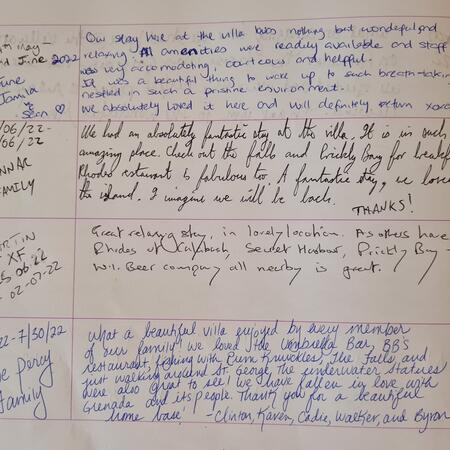 Our stay here at the villa was nothing but wonderful and
June 2022
relaxing. All amenities were readily available and staff
was very accomodating, courteous and helpful.
June
Jamila
It was a beautiful thing to wake up to such breath-taking
&
Sean ♡
nestled in such a pristine environment.
We absolutely loved it here and will definitely return xoxo
/06/22-
We had an absolutely fantastic stay at the villa. It is in such
amazing place. Check out the falls and Prickly Bay for breakf
NNAR
FAMILY
Rhodes restaurant is fabulous too. A fantastic stay, we love
the island. I imagine we will be back.
THANKS!
RTIN
Great relaxing stay, in lovely location. As others have
XF
06 22
Rhodes at Calabash, Secret Harbour, Prickly Bay -
- 02-07-22
W.I. Beer company all nearby is great.
22-7/30/22
What a beautiful villa enjoyed by every member
of our family! We loved the Umbrella Bar, BB's
e Percy
restaurant, fishing with Bum Knuckles, The Falls, and
Family
just walking around St. George. The underwater statues
were also great to see! We have fallen in love with
Grenada and its people. Thank you for a beautiful
home base!
-Clinton, Karen, Cadie, Walker, and Byron